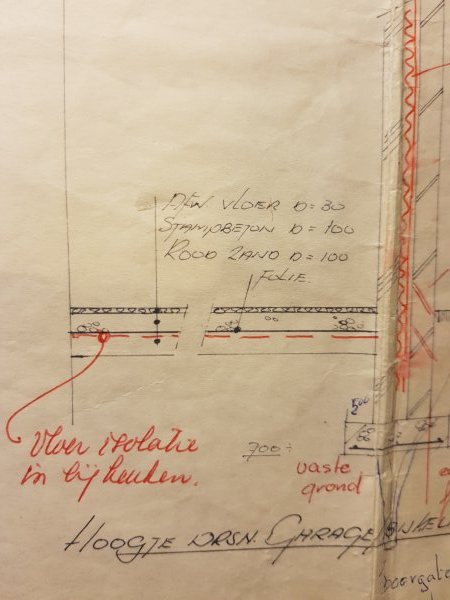 AFW VLOER D=30
STAMPBETON D=100
ROOD ZAND D=100
FOLIE
500
Vloer isolatie
in bijkeuken.
700 ÷
vaste
grond
HOOGTE DRSN. GARAGE